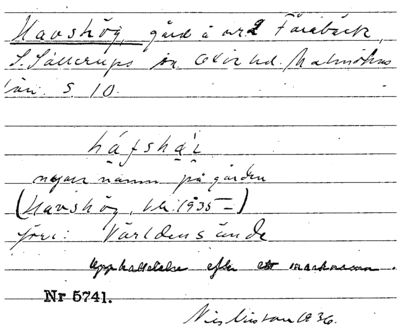 Havshög, gård å nr 2 Färabäck,
S. Sallerups sn Oxie hd. Malmöhus
län. S. 10.
háfshǫ̀i
namn på gården
(Havshög, 1935–)
förr: Världens ände
efter ett
Nr 5741.
1936.